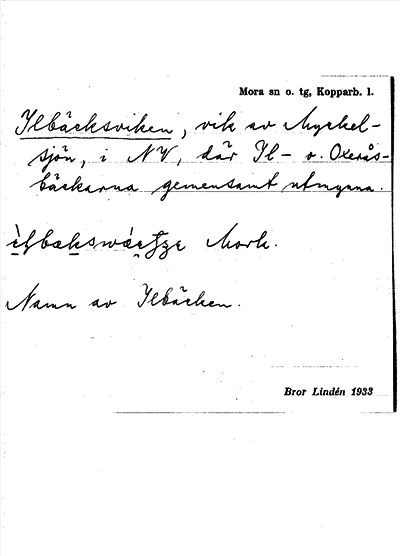 Mora sn o. tg, Kopparb. l.
Ilbäcksviken, vik av Myckel-
sjön, i NV, där Il- o. Oxerås-
bäckarna gemensamt utmynna.
Mork.
Namn av Ilbäcken.
Bror Lindén 1933